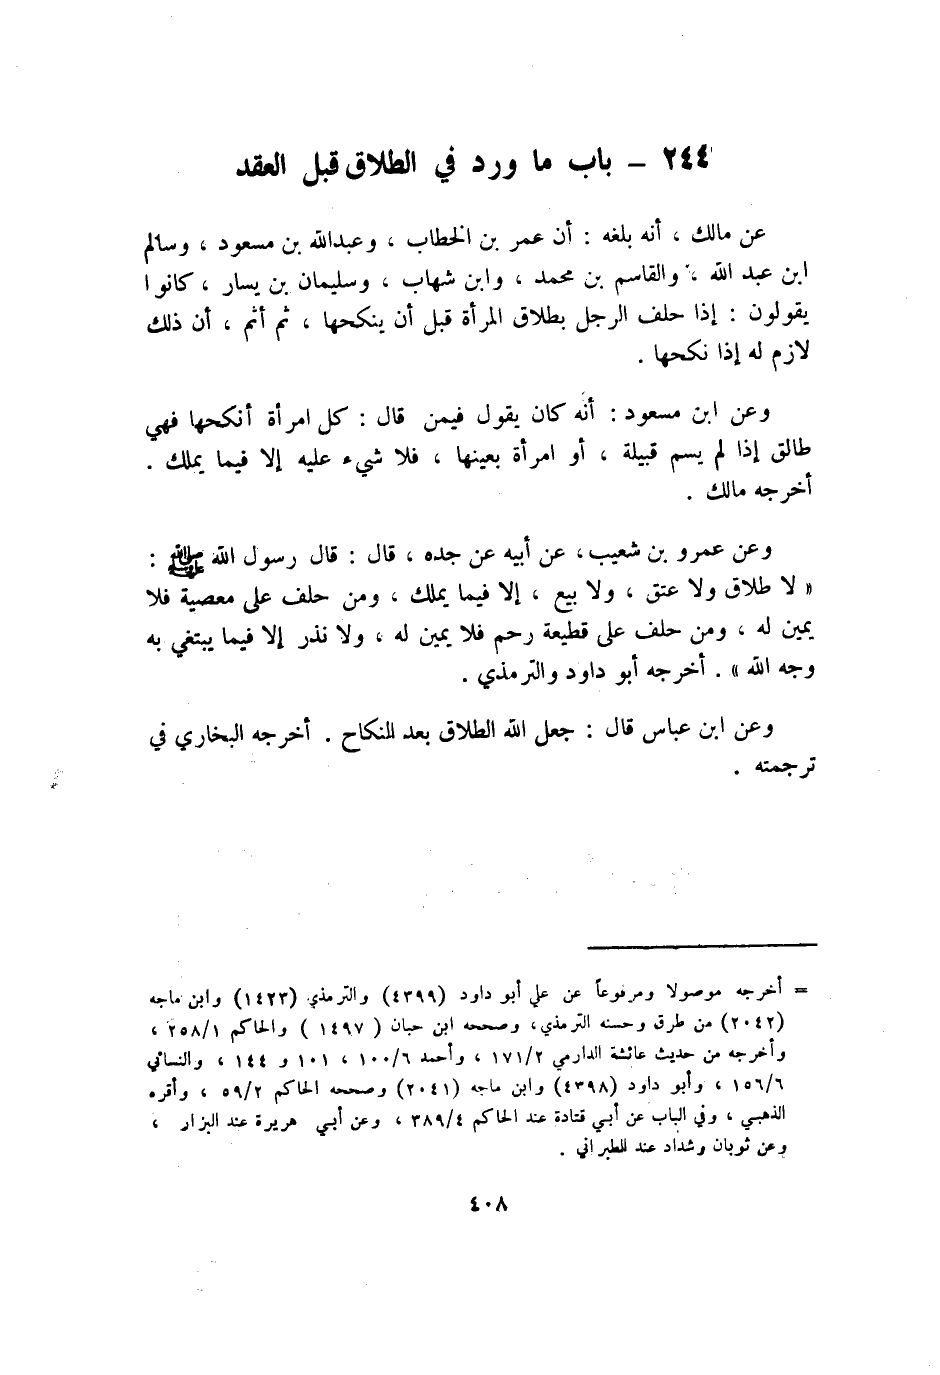 ٢٤٤ – باب ما ورد في الطلاق قبل العقد
عن مالك ، أنه بلغه : أن عمر بن الخطاب ، وعبدالله بن مسعود ، وسالم
ابن عبد الله ، والقاسم بن محمد ، وابن شهاب ، وسليمان بن يسار ، كانوا
يقولون : إذا حلف الرجل بطلاق المرأة قبل أن ينكحها ، ثم أثم ، أن ذلك
لازم له إذا نكحها .
وعن ابن مسعود : أنه كان يقول فيمن قال : كل امرأة أنكحها فهي
طالق إذا لم يسم قبيلة ، أو امرأة بعينها ، فلا شيء عليه إلا فيما يملك .
أخرجه مالك .
وعن عمرو بن شعيب ، عن أبيه عن جده ، قال : قال رسول الله ﷺ :
« لا طلاق ولا عتق ، ولا بيع ، إلا فيما يملك ، ومن حلف على معصية فلا
يمين له ، ومن حلف على قطيعة رحم فلا يمين له ، ولا نذر إلا فيما يبتغي به
وجه الله » . أخرجه أبو داود والترمذي .
وعن ابن عباس قال : جعل الله الطلاق بعد النكاح . أخرجه البخاري في
ترجمته .
= أخرجه موصولا ومرفوعاً عن علي أبو داود (٤٣٩٩) والترمذي (١٤٢٣) وابن ماجه
(٢٠٤٢) من طرق وحسنه الترمذي، وصححه ابن حبان ( ١٤٩٧ ) والحاكم ٢٥٨/١ ،
وأخرجه من حديث عائشة الدارمي ١٧١/٢ ، وأحمد ١٠٠/٦ ، ١٠١ و ١٤٤ ، والنسائي
١٥٦/٦ ، وأبو داود (٤٣٩٨) وابن ماجه (٢٠٤١) وصححه الحاكم ٥٩/٢ ، وأقره
الذهبي ، وفي الباب عن أبي قتادة عند الحاكم ٣٨٩/٤ ، وعن أبي هريرة عند البزار ،
وعن ثوبان وشداد عند الطبراني .
٤٠٨